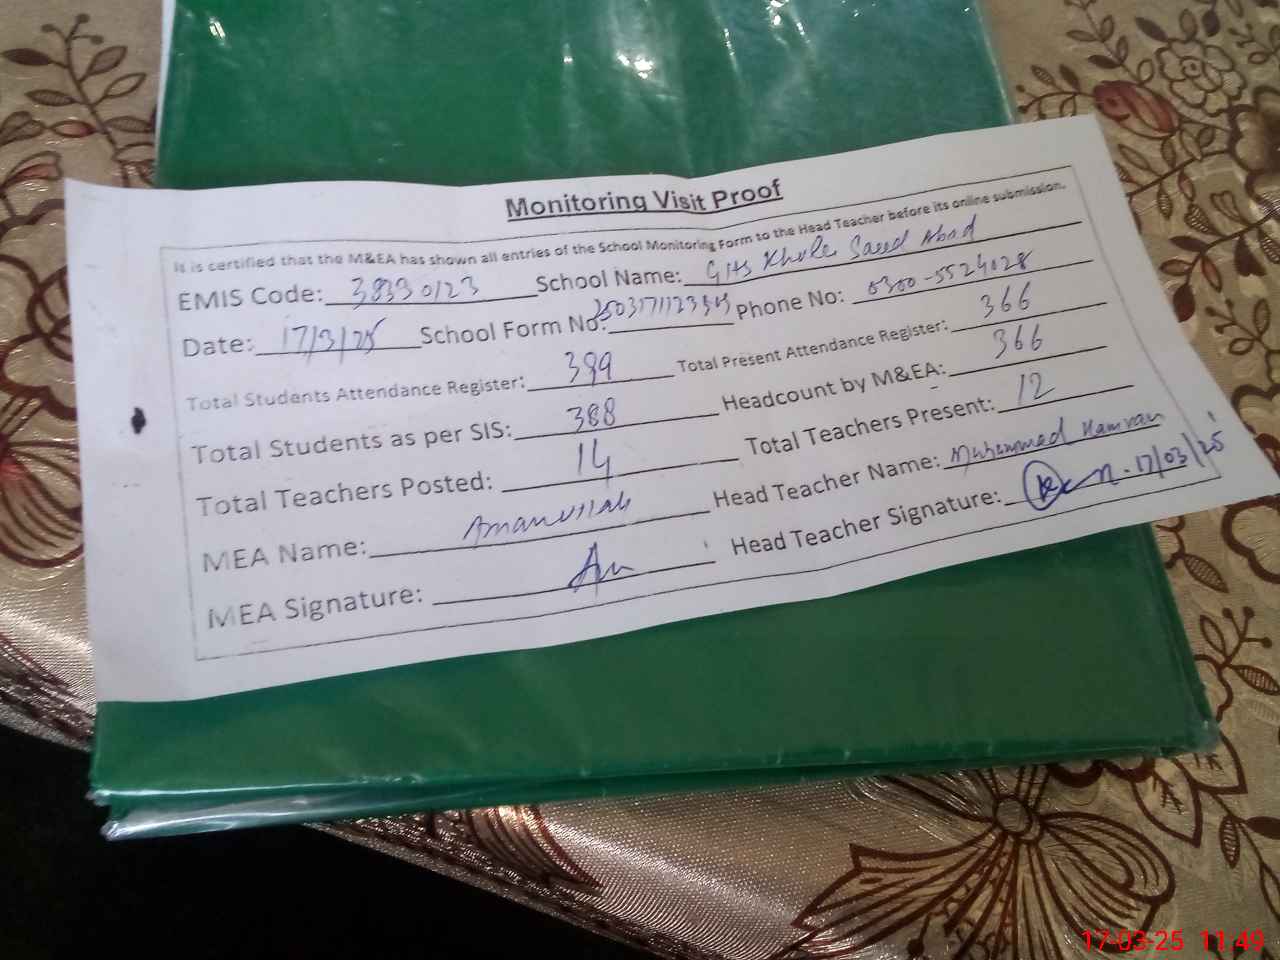 Monitoring Visit Proof
It is certified that the M&EA has shown all entries of the School Monitoring Form to the Head Teacher before its online submission.
EMIS Code: 38330123 School Name: GHS Khole Saeed Abad
Date: 17/3/25 School Form No: Phone No: 0300-5524028
Total Students Attendance Register: 399 Total Present Attendance Register: 366
Total Students as per SIS: 388 Headcount by M&EA: 366
Total Teachers Posted: 14 Total Teachers Present: 12
MEA Name: Amanullah Head Teacher Name: Muhammad Kamran
MEA Signature: Head Teacher Signature: 17/03/25
17-03-25 11:49